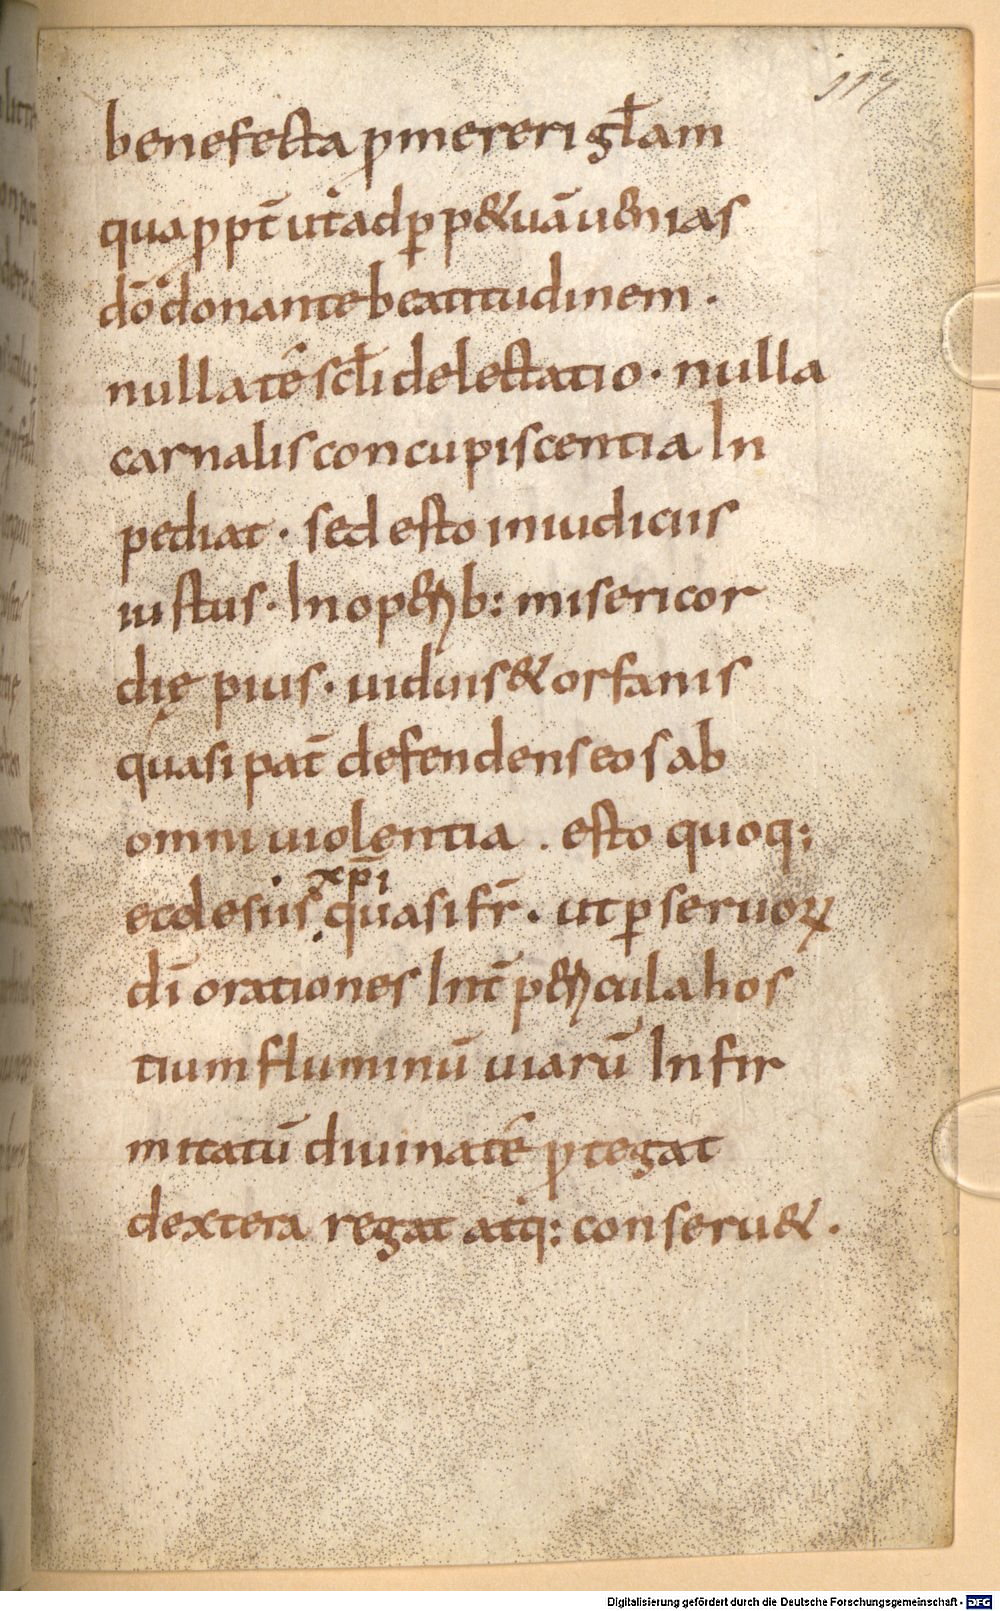 119
benefecta ꝓmereri gł̄am
quapropt̄ ut ad ꝑp&uā uenias
dō donante beatitudinem .
nulla tē sc̄li delectatio · nulla
carnalis concupiscentia In
pediat · sed esto iniudiciis
iustus · In operib: misericor
dię pius · uiduis & orfanis
quasi pat̄ defendens eos ab
omni uiolentia . esto quoq;
xp̄i
ecclesiis quasi fr̄ . ut ꝑ seruoꝝ
dī orationes Int̄ pericula hos
tium fluminū uiarū Infir
mitatū diuina tē ꝓtegat
dextera regat atq: conseru& .
Digitalisierung gefördert durch die Deutsche Forschungsgemeinschaft - DFG